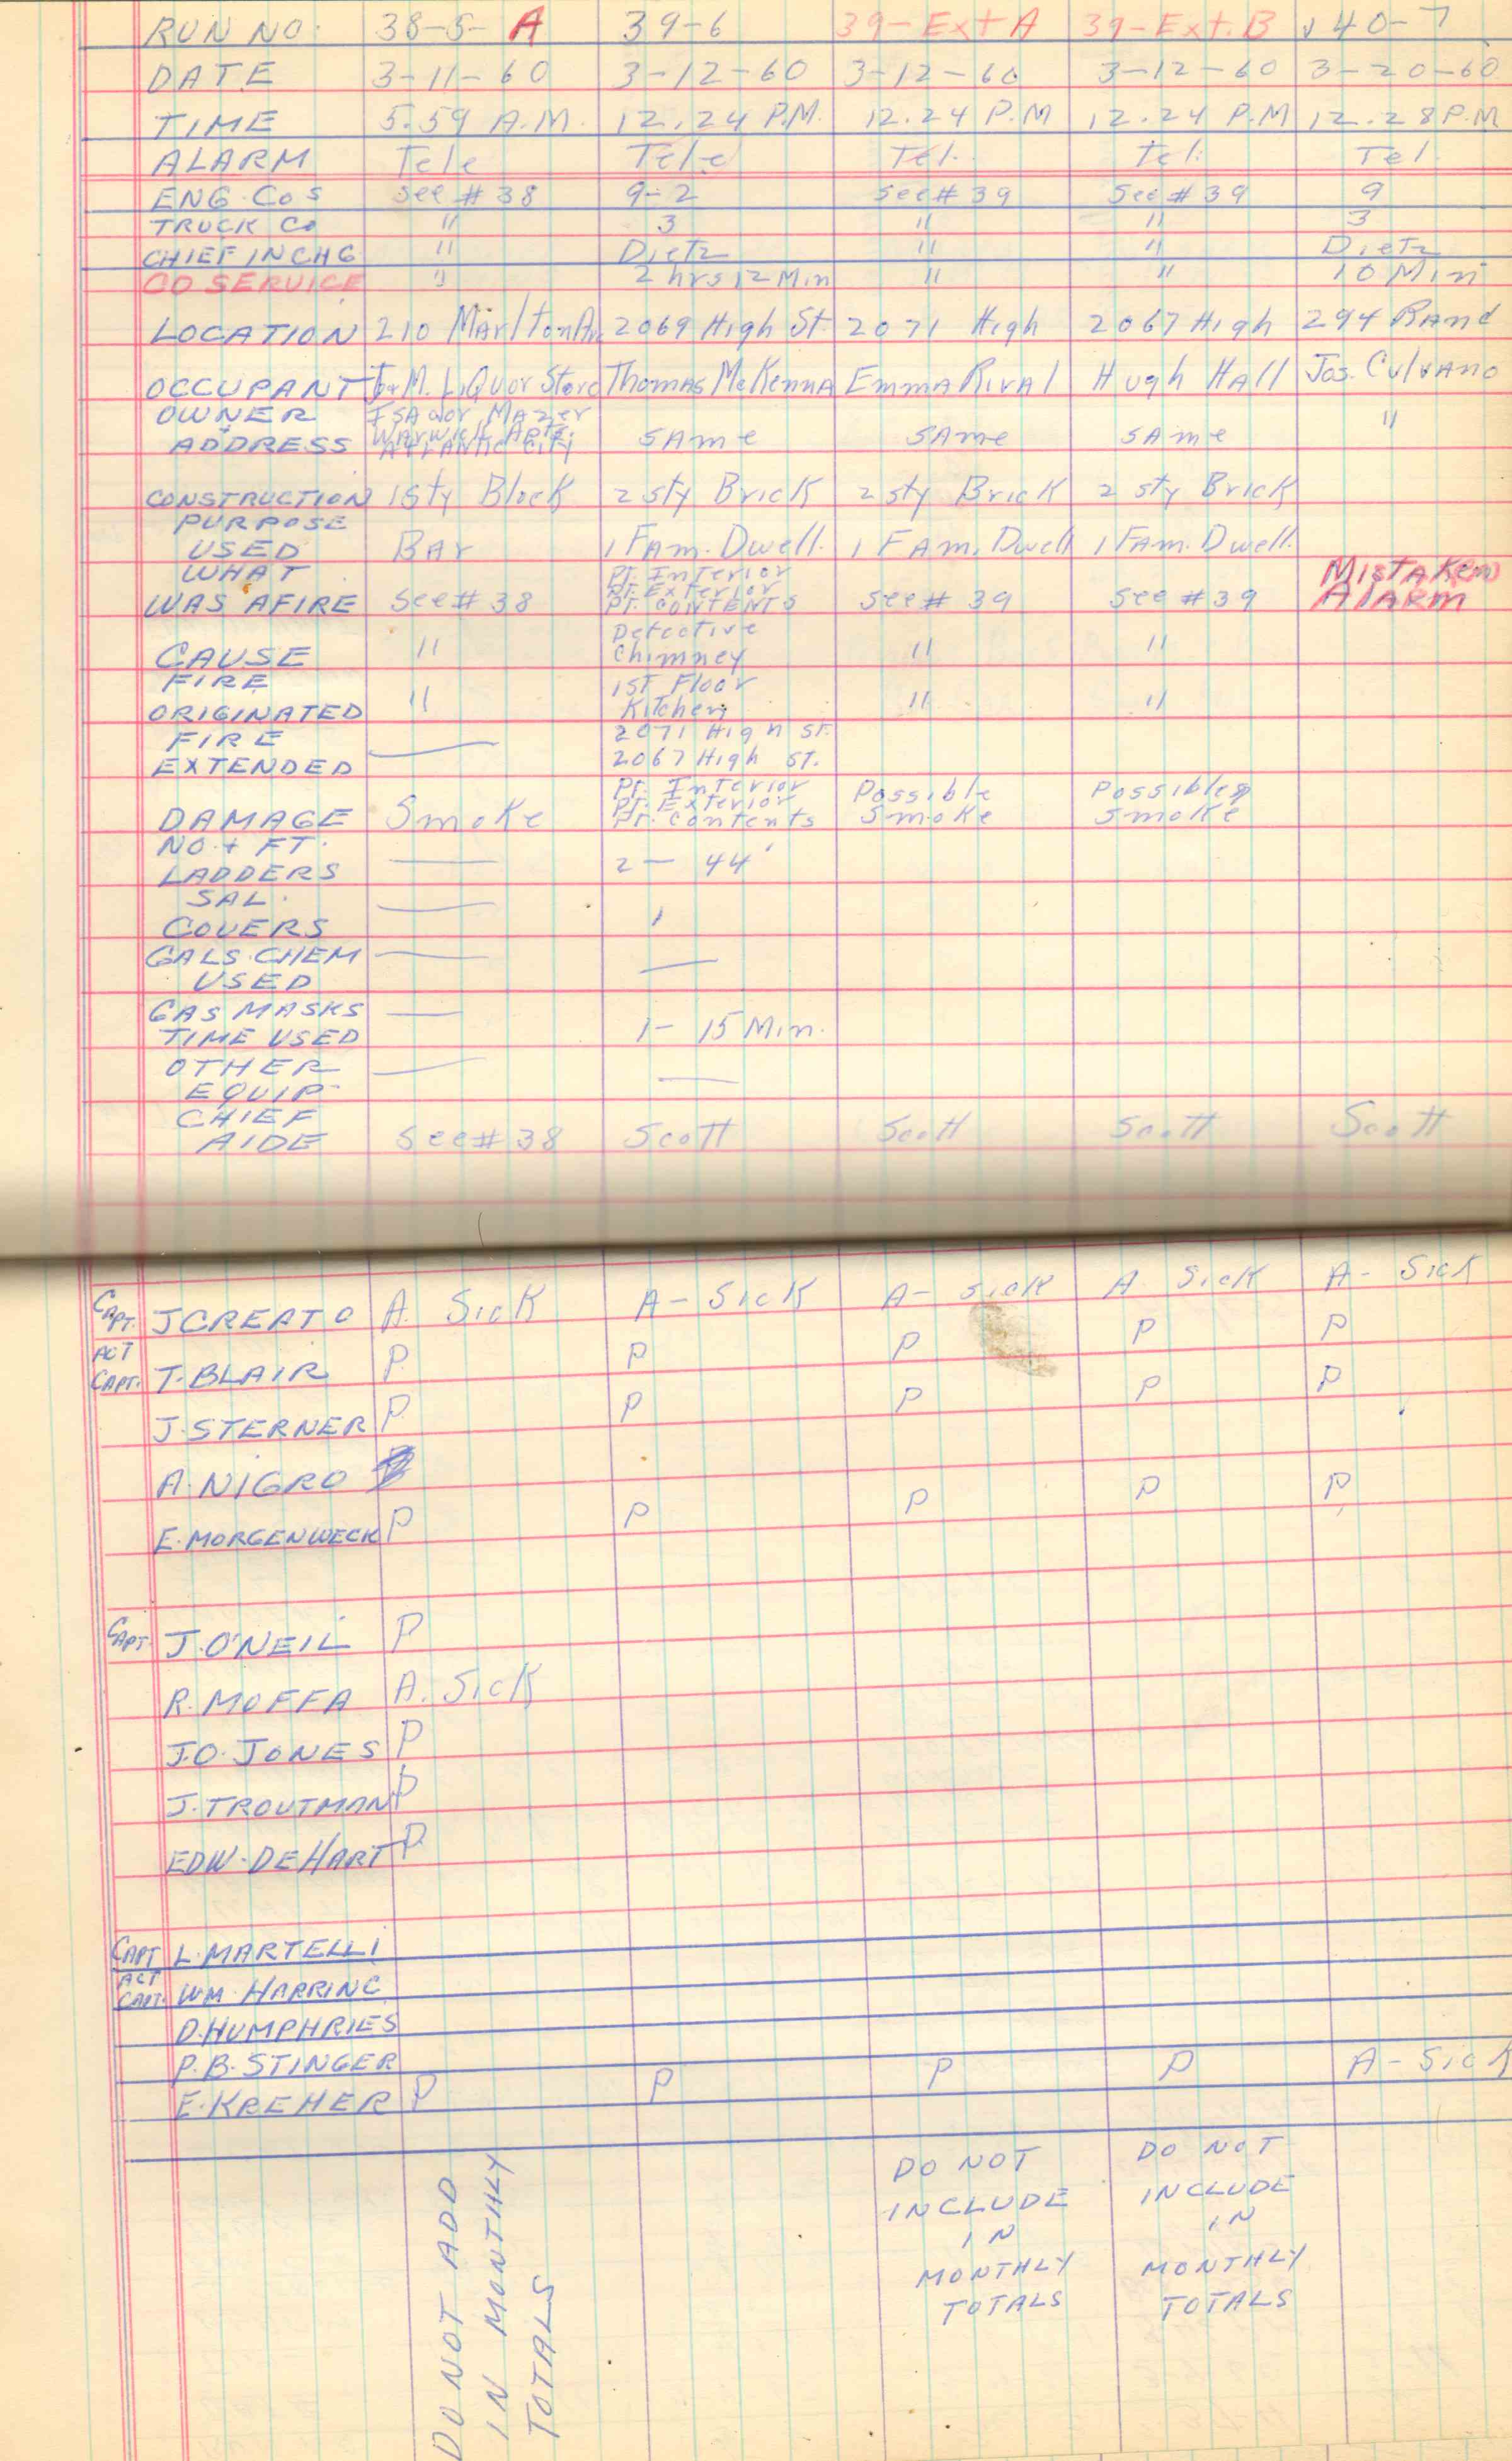 RUN NO. 38-5-A 39-6 39-Ext A 39-Ext.B √40-7
DATE 3-11-60 3-12-60 3-12-60 3-12-60 3-20-60
TIME 5.59 A.M. 12.24 P.M. 12.24 P.M 12.24 P.M 12.28 P.M
ALARM Tele Tele Tel. Tel. Tel.
ENG. CoS See # 38 9-2 See # 39 See # 39 9
TRUCK Co " 3 " " 3
CHIEF IN CHG " Dietz " " Dietz
CO SERVICE " 2 hrs 12 Min " " 10 Min
LOCATION 210 Marlton Av. 2069 High St. 2071 High 2067 High 294 Rand
OCCUPANT I&M. LiQuor Store Thomas McKenna Emma Rival Hugh Hall Jos. Culvano
OWNER Isador Mazer "
Warwick Apts.
ADDRESS Atlantic City SAme SAme SAme
CONSTRUCTION 1 Sty Block 2 sty Brick 2 sty Brick 2 sty Brick
PURPOSE
USED BAr 1 FAm. Dwell. 1 FAm. Dwell 1 FAm. Dwell.
WHAT Pt. Interior Mistaken
Pt. Exterior
WAS AFIRE See # 38 Pt. CONTENTS See # 39 See # 39 Alarm
Defective
CAUSE " Chimney " "
FIRE 1ST Floor
ORIGINATED " Kitchen " "
FIRE 2071 High ST.
EXTENDED — 2067 High ST.
Pt. Interior Possible Possible
Pt. Exterior
DAMAGE Smoke Pt. Contents Smoke Smoke
NO. & FT.
LADDERS — 2 - 44'
SAL.
COVERS — 1
GALS. CHEM — —
USED
GAS MASKS —
TIME USED 1- 15 Min.
OTHER —
EQUIP. —
CHIEF
AIDE See # 38 Scott Scott Scott Scott
CAPT. J CREATO A. Sick A- Sick A- sick A Sick A- Sick
ACT
CAPT. T. BLAIR P P P P P
J. STERNER P P P P P
A. NIGRO
E. MORGENWECK P P P P P
CAPT. J. O'NEIL P
R. MOFFA A. Sick
J.O. JONES P
J. TROUTMAN P
EDW. DEHART P
CAPT L. MARTELLI
ACT
CAPT. WM. HARRING
D. HUMPHRIES
P.B. STINGER
E. KREHER P P P P A- Sick
DO NOT ADD
IN MONTHLY
TOTALS
DO NOT
INCLUDE
IN
MONTHLY
TOTALS
DO NOT
INCLUDE
IN
MONTHLY
TOTALS